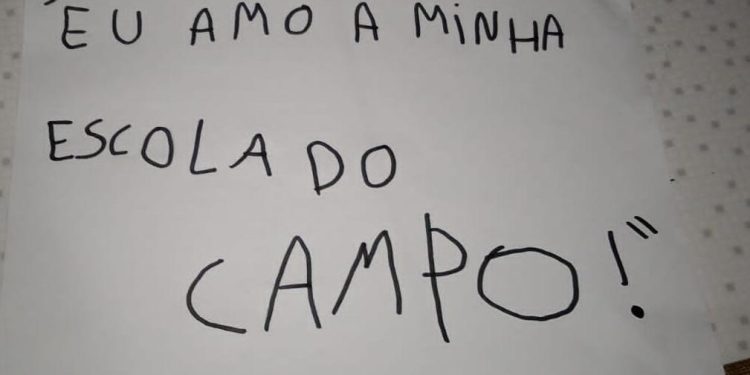 "EU AMO A MINHA
ESCOLA DO
CAMPO!"